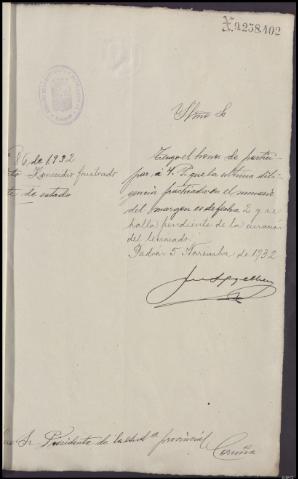 N.1258.102
Ylmo Sr
86 de 1932
Leandro
te de estado
Tengo el honor de partici-
par á V. I. que la ultima dili-
gencia practicada en el sumario
del margen es de fecha 2 y se
halla pendiente de la curacion
del lesionado.
Padrón 5 Noviembre de 1932
Sr Presidente de la Audª provincial Coruña